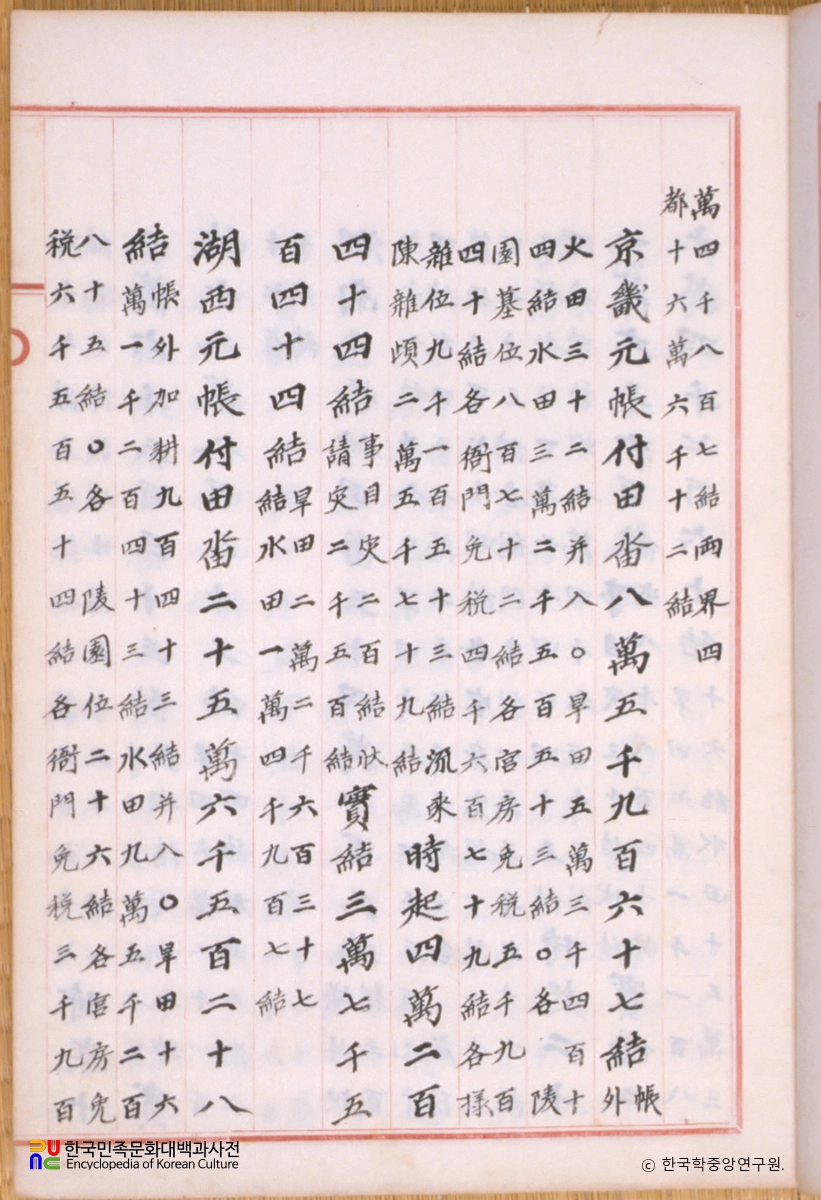 萬四千八百七結两界四
都十六萬六千十二結
京畿元帳付田畓八萬五千九百六十七結帳外
火田三十二結并入○旱田五萬三千四百十
四結水田三萬二千五百五十三結○各陵
園墓位八百七十二結各宮房免税五千九百
四十結各衙門免税四千六百七十九結各様
雜位九千一百五十三結流来
陳雜頉二萬五千七十九結
時起四萬二百
四十四結
事目灾二百結状
請灾二千五百結
實結三萬七千五
百四十四結
旱田二萬二千六百三十七
結水田一萬四千九百七結
湖西元帳付田畓二十五萬六千五百二十八
結
帳外加耕九百四十三結并入○旱田十六
萬一千二百四十三結水田九萬五千二百
八十五結○各陵園位二十六結各宮房免
税六千五百五十四結各衙門免税三千九百
한국민족문화대백과사전
Encyclopedia of Korean Culture
© 한국학중앙연구원.